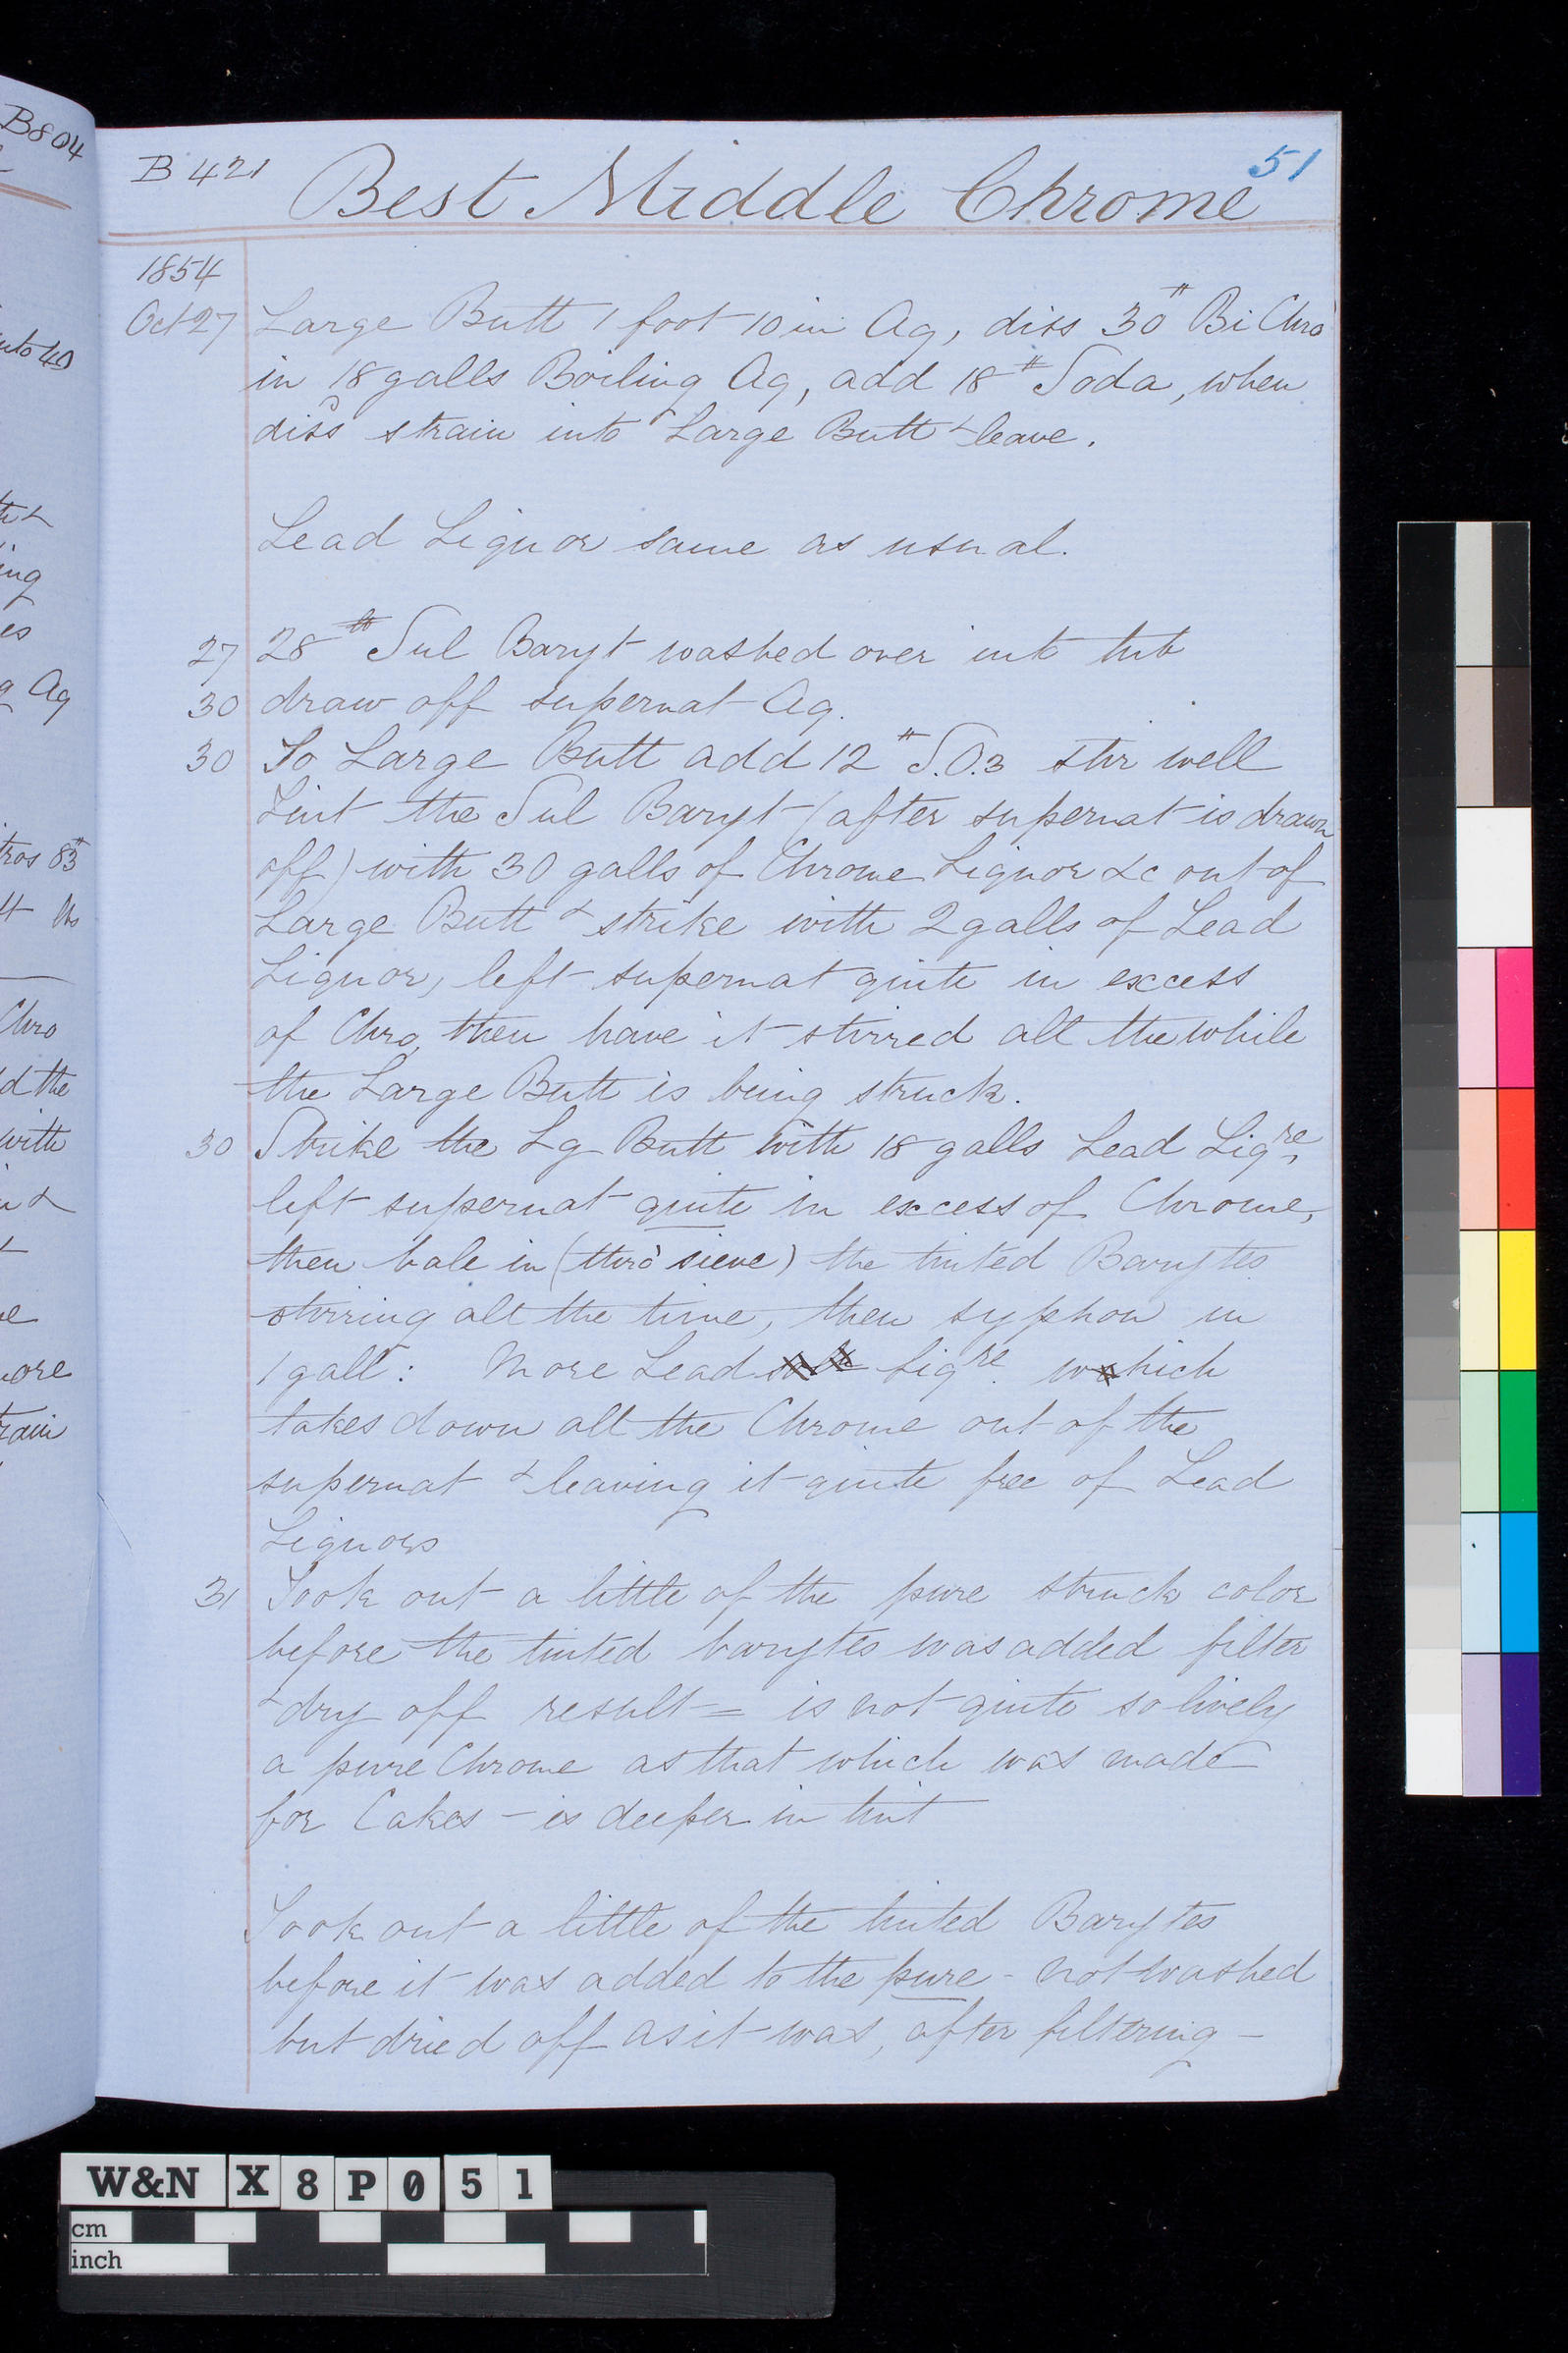 B804
B421
Best Middle Chrome
51
1854
Oct 27 Large Butt 1 foot 10 in Aq, diss 30# Bi Chro
in 18 galls Boiling Aq, add 18# Soda, when
diss strain into Large Butt & leave.
Lead Liquor same as usual.
27 28# Sul Baryt washed over into tub
30 draw off supernat Aq.
30 To Large Butt add 12# S.O.3 stir well
Tint the Sul Baryt (after supernat is drawn
off) with 30 galls of Chrome Liquor &c out of
Large Butt & strike with 2 galls of Lead
Liquor, left supernat quite in excess
of Chro, then have it stirred all the while
the Large Butt is being struck.
30 Strike the Lg Butt with 18 galls Lead Liqre,
left supernat quite in excess of Chrome,
then bale in (thro' sieve) the tinted Barytes
stirring all the time, then syphon in
1 gall: More Lead Liqre. which
takes down all the Chrome out of the
supernat & leaving it quite free of Lead
Liquors
31 Took out a little of the pure struck color
before the tinted barytes was added filter
& dry off result = is not quite so lively
a pure Chrome as that which was made
for Cakes - is deeper in tint
Took out a little of the tinted Barytes
before it was added to the pure - not washed
but dried off as it was, after filtering -
into 40
ing
es
Aq
Chro
d the
with
ore
W&N X 8 P 0 5 1
cm
inch